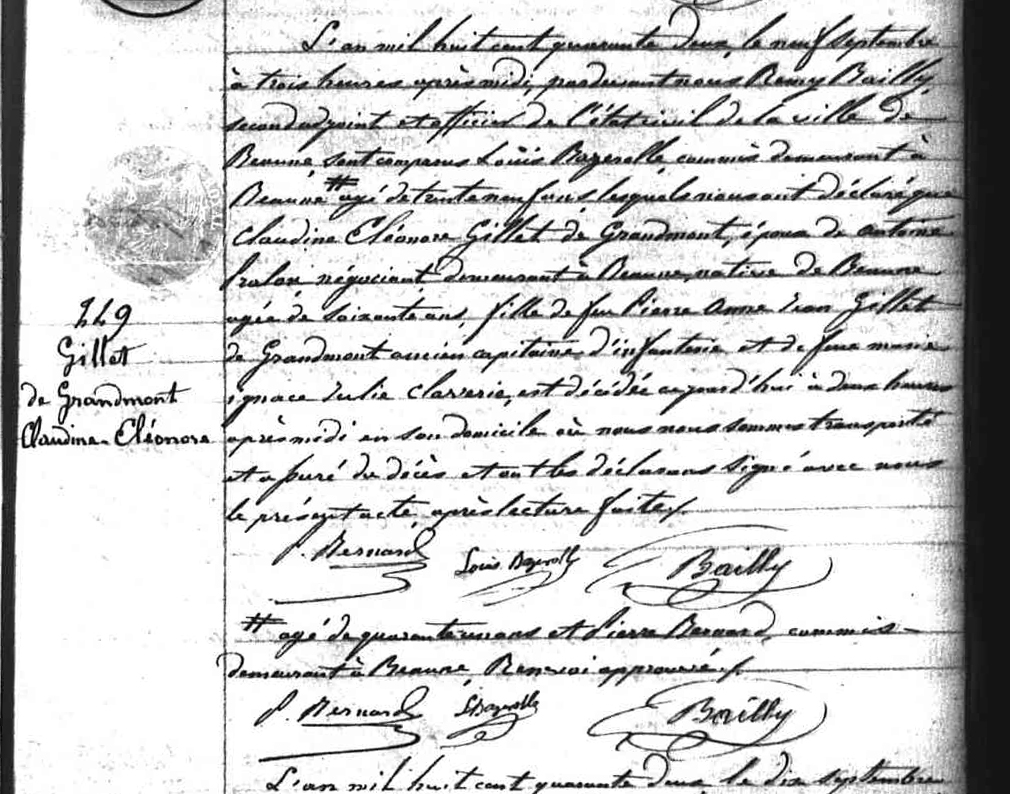 L'an mil huit cent quarante deux, le neuf septembre
à trois heures après midi, pardevant nous Remy Bailly,
second adjoint et officier de l'état civil de la ville de
Beaune, sont comparus Louis Bazerolle, commis demeurant à
Beaune # agé de trente neuf ans, lesquels nous ont déclaré que
Claudine Eléonore Gillet de Grandmont, épouse de antoine
négociant demeurant à Beaune, native de Beaune
agée de soixante ans, fille de feu Pierre Anne Jean Gillet
de Grandmont ancien capitaine d'infanterie et de feue marie
ignace Julie est décédée aujourd'hui à deux heures
après midi en son domicile où nous nous sommes transporté
et assuré du décès et ont les déclarans signé avec nous
le présent acte, après lecture faite./.
249
Gillet
de Grandmont
Claudine-Eléonore
P. Bernard Louis Bazerolle Bailly
# agé de quarante un ans et Pierre Bernard, commis
demeurant à Beaune, Renvoi approuvé./.
P. Bernard LBazerolle Bailly
L'an mil huit cent quarante deux, le dix septembre